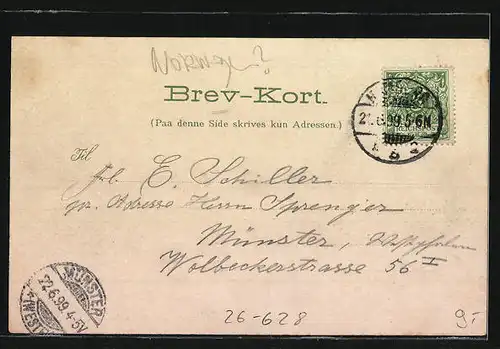 Norwege?
Brev-Kort.
(Paa denne Side skrives kun Adressen.)
Til
Frl. E. Schiller
pr. Adresse Herrn Sprenger
Münster, Westfalen
Wolbeckerstrasse 56 I
21.6.99.5-6N
MÜNSTER
22.6.99.4-5V
26-628
9.-